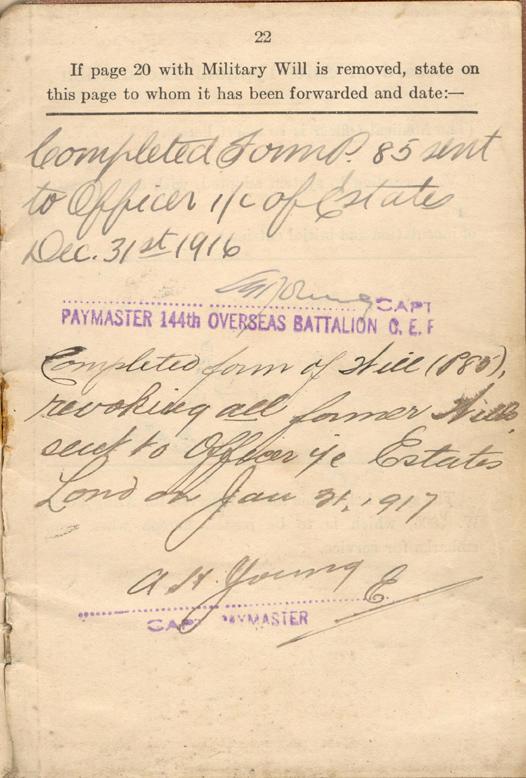 22
If page 20 with Military Will is removed, state on
this page to whom it has been forwarded and date:—
Completed Form P. 85 sent
to Officer i/c of Estates
Dec. 31st 1916
Young CAPT
PAYMASTER 144th OVERSEAS BATTALION C. E. F
Completed form of Will (P85),
revoking all former Wills,
sent to Officer i/c Estates
London Jan 31, 1917
A H Young
CAPT PAYMASTER